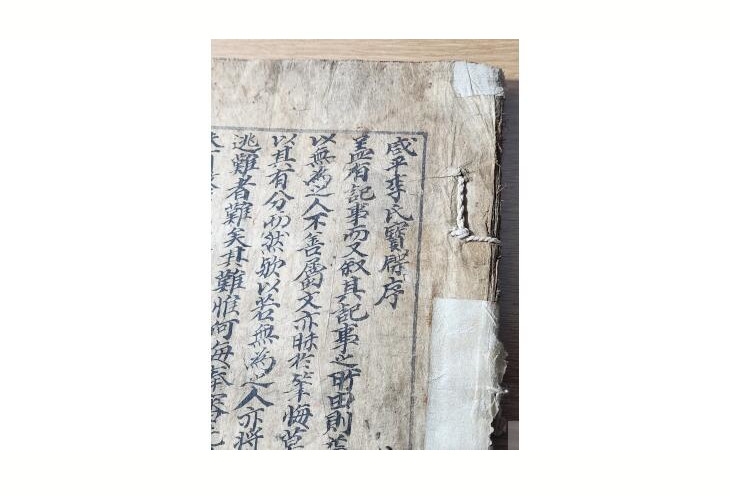 咸平李氏寶牒序
盖有記事而又叙其記事之所由則
以無為之人不善属文亦昧於筆
以其有分而然欤以若無為之人亦将
逃難者難矣其難惟何每